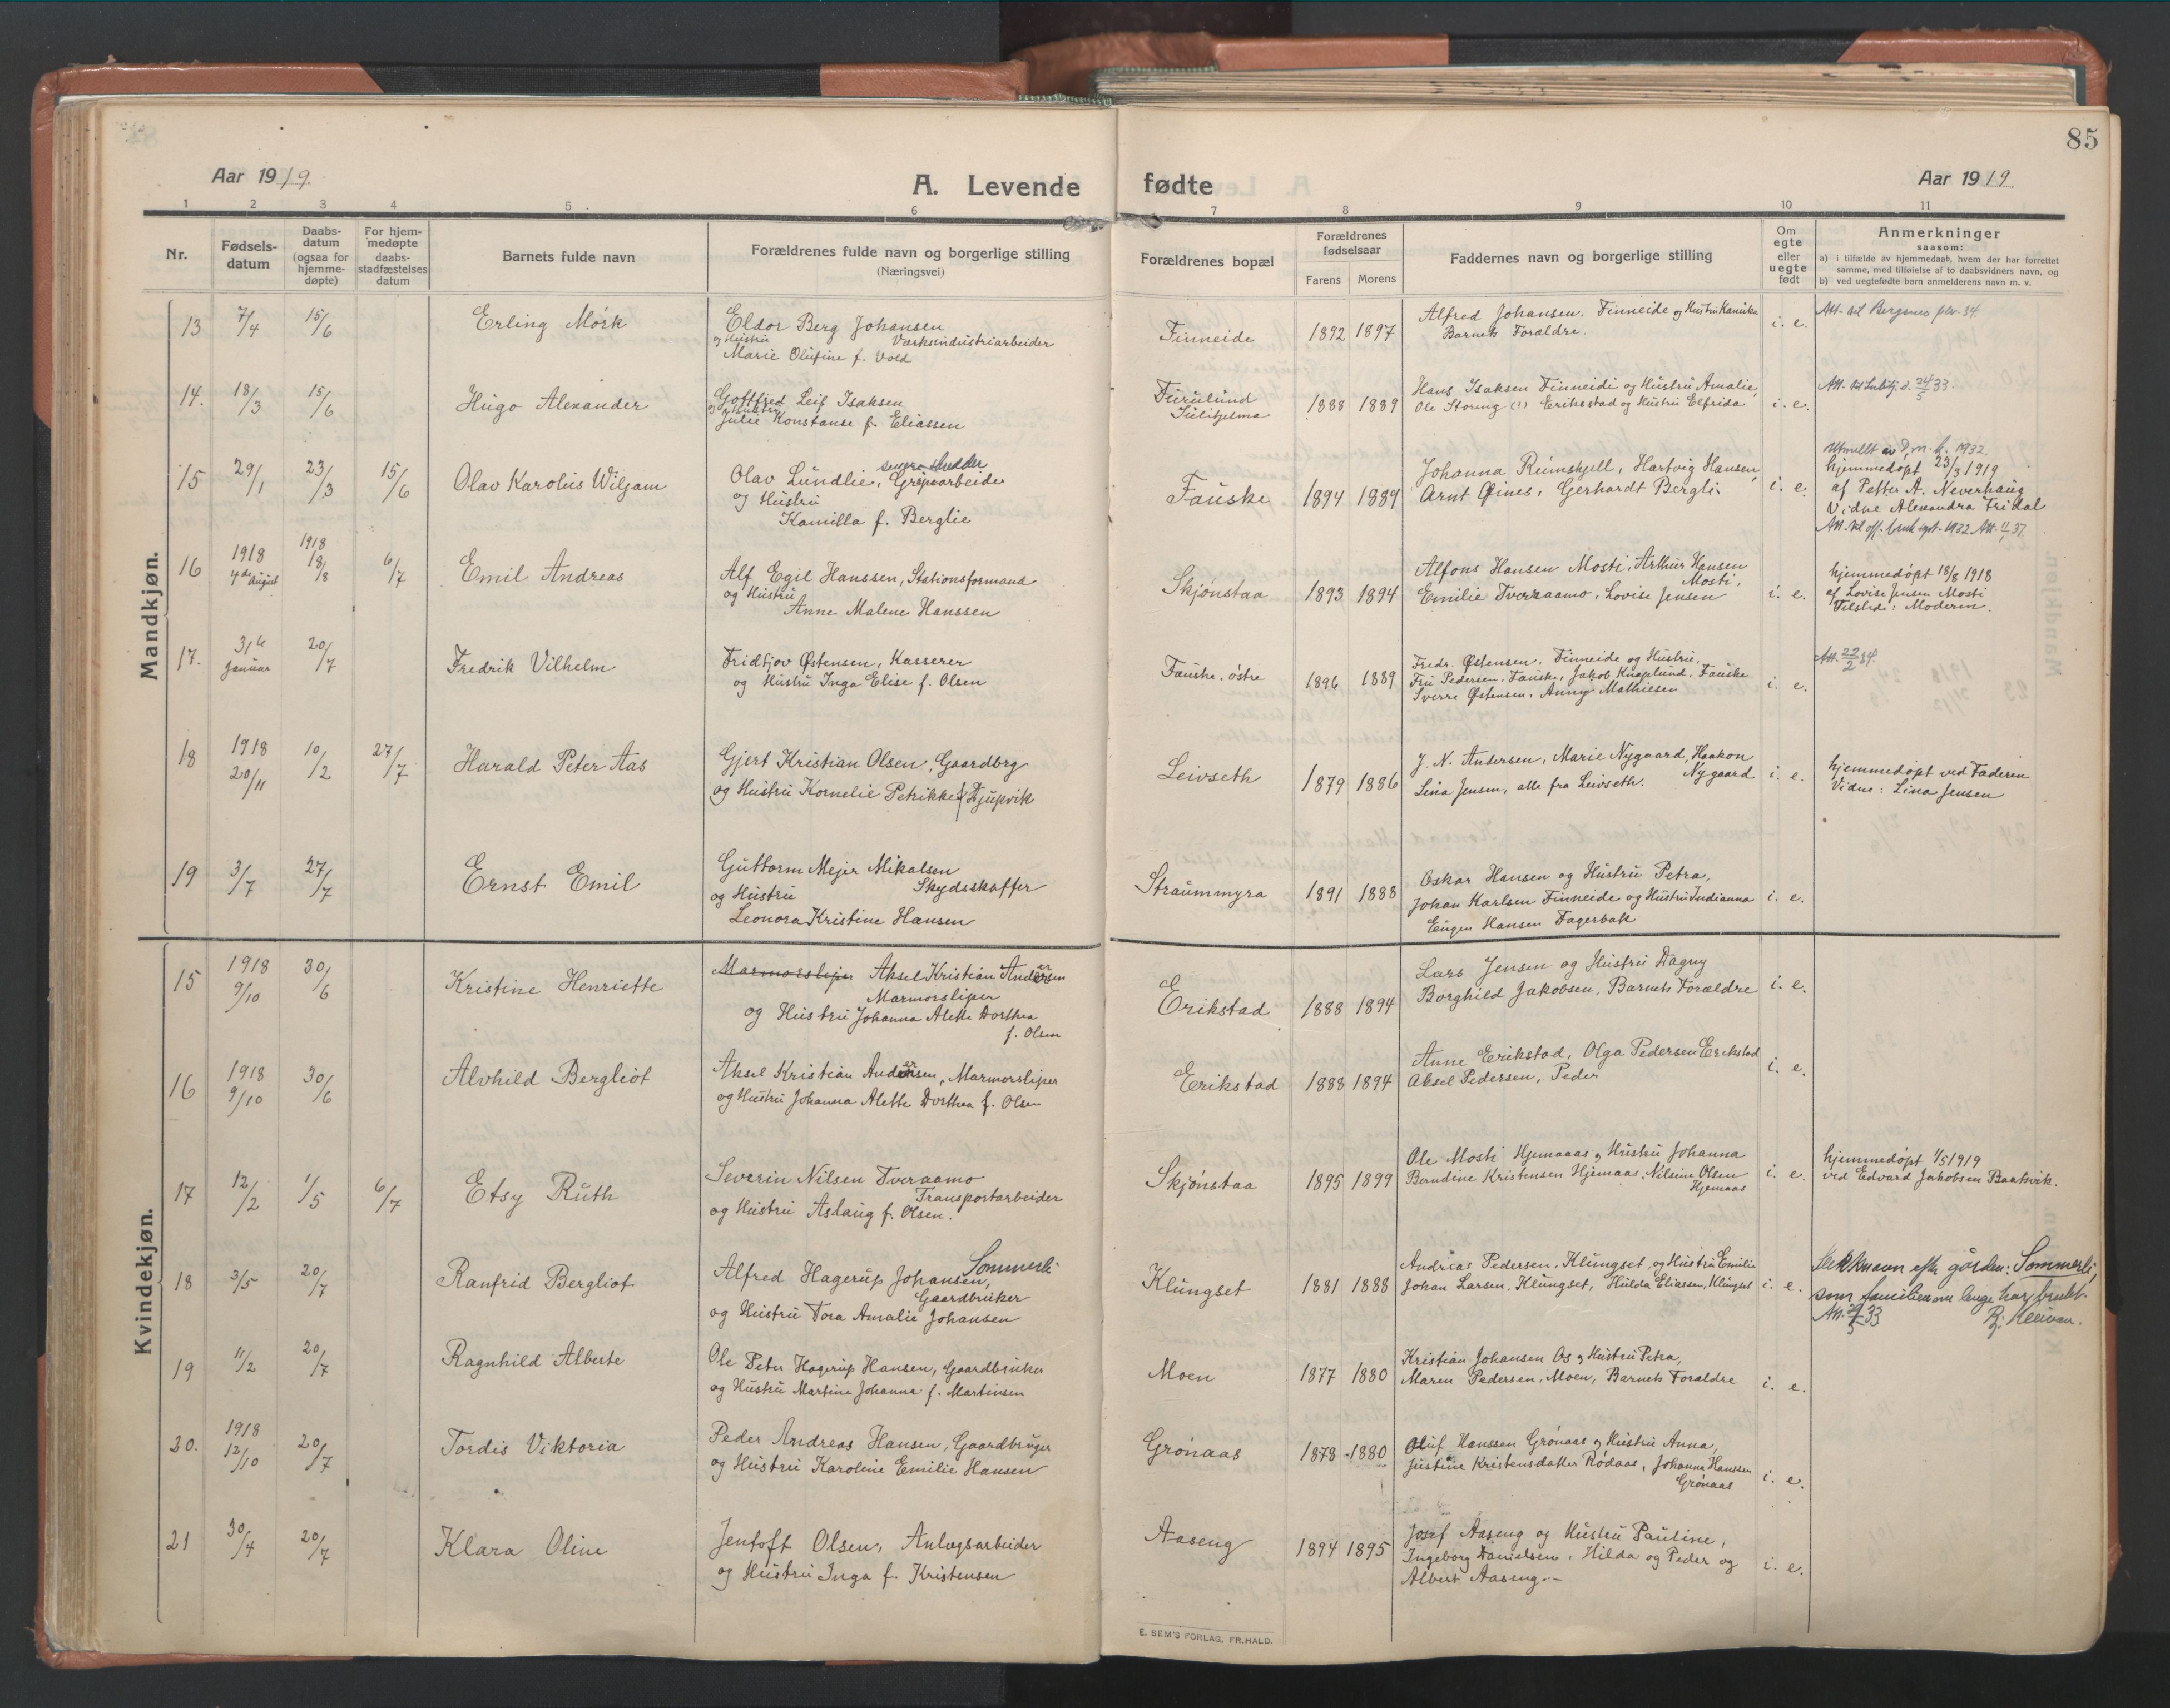 85
Aar 1919.
A. Levende fødte
Aar 1919
1 2 3 4 5 6 7 8 9 10 11
Nr.
Fødsels-
datum
Daabs-
datum
(ogsaa for
hjemme-
døpte)
For hjem-
medøpte
daabs-
stadfæstelses
datum
Barnets fulde navn
Forældrenes fulde navn og borgerlige stilling
(Næringsvei)
Forældrenes bopæl
Forældrenes
fødselsaar
Farens Morens
Faddernes navn og borgerlige stilling
Om
egte
eller
uegte
født
Anmerkninger
saasom:
a) i tilfælde av hjemmedaab, hvem der har forrettet
samme, med tilføielse af to daabsvidners navn, og
b) ved uegtefødte barn anmelderens navn m. v.
Mandkjøn.
13 7/4 15/6 Erling Mörk
Eldor Berg Johansen
og Hustru Værksindustriarbeider
Marie Olufine f. Vold
Finneide 1892 1897
Alfred Johansen. Finneide og Hustru
Barnets Forældre.
i. e.
14. 18/3 15/6 Hugo Alexander
Gottfred Leif Isaksen
og Hustru
Julie Konstanse f. Eliassen
Furulund
Sulitjelma
1888 1889
Hans Isaksen Finneidi og Hustru Amalie,
Ole Storeng (?) Erikstad og Hustru Elfrida
i. e.
Att. 24/5 33.
15 29/1 23/3 15/6 Olav Karolus Wiljam
Olav Lundlie, Grubearbeide
og Hustru
Kamilla f. Berglie
Fauske 1894 1889
Johanna Reimskjell, Hartvig Hansen,
Arnt Øines, Gerhardt Bergli.
i. e.
1932
hjemmedöpt 23/3 1919
af Petter A. Neverhaug
Vidne Alexandra Fridal
16 1918 4de August 1918 18/8 6/7 Emil Andreas
Alf Egil Hanssen, Stationsformand
og Hustru
Anne Malene Hanssen
Skjønstaa 1893 1894
Alfons Hansen Mosti, Arthur Hansen
Mosti,
Emilie Tverraamo, Lovise Jensen
i. e.
hjemmedöpt 18/8 1918
af Lovise Jensen Mosti
Tilstede: Moderen.
17. 31te Januar 20/7 Fredrik Vilhelm
Fridtjov Østensen, Kasserer
og Hustru Inga Elise f. Olsen
Fauske, østre 1896 1889
Fredr. Østensen, Finneide og Hustru,
Fru Pedersen, Fauske, Jakob Knaplund, Fauske
Sverre Østensen, Anny Mathiesen
i. e.
Att. 22/2 34.
18 1918 20/11 10/2 27/7 Harald Peter Aas
Gjert Kristian Olsen, Gaardbrg
og Hustru Kornelie Petrikke f. Djupvik
Leivseth 1879 1886
J. N. Andersen, Marie Nygaard, Haakon
Nygaard
Lina Jensen, alle fra Leivseth.
i. e.
hjemmedöpt ved Faderen
Vidne: Lina Jensen
19 3/7 27/7 Ernst Emil
Guttorm Mejer Mikalsen
og Hustru Skydsskaffer
Leonora Kristine Hansen
Straummyra 1891 1888
Oskar Hansen og Hustru Petra,
Johan Karlsen Finneide og Hustru Indianna
Eugen Hansen Fagerbak
i. e.
Kvindekjøn.
15 1918 9/10 30/6 Kristine Henriette
Marmorsliper Aksel Kristian Andersen
Marmorsliper
og Hustru Johanna Alette Dorthea
f. Olsen
Erikstad 1888 1894
Lars Jensen og Hustru Dagny
Borghild Jakobsen, Barnets Forældre
i. e.
16 1918 9/10 30/6 Alvhild Bergliot
Aksel Kristian Andersen, Marmorsliper
og Hustru Johanna Alette Dorthea f. Olsen
Erikstad 1888 1894
Anne Erikstad, Olga Pedersen Erikstad
Aksel Pedersen, Peder
i. e.
17 12/2 1/5 6/7 Etsy Ruth
Severin Nilsen Tveraamo
Transportarbeider
og Hustru Aslaug f. Olsen.
Skjønstaa 1895 1899
Ole Mosti Hjemaaas og Hustru Johanna
Berndine Kristensen Hjemaas, Nilsine Olsen
Hjemaas
i. e.
hjemmedöpt 1/5 1919
ved Edvard Jakobsen Baatsvik.
18 3/5 20/7 Ranfrid Bergliot
Sommerli
Alfred Hagerup Johansen,
Gaardbruker
og Hustru Tora Amalie Johansen
Klungset 1881 1888
Andreas Pedersen, Klungset, og Hustru Emilie
Johan Larsen, Klungset, Hilda Eliassen, Klungset
i. e.
Slektsnavn efter gården: Sommerli,
som familien over lenge har brukt.
19 11/2 20/7 Ragnhild Alberte
Ole Peter Hagerup Hansen, Gaardbruker
og Hustru Martine Johanna f. Martinsen
Moen 1877 1880
Kristian Johansen Os og Hustru Petra,
Maren Pedersen, Moen, Barnets Forældre
i. e.
20. 1918 12/10 20/7 Tordis Viktoria
Peder Andreas Hansen, Gaardbruger
og Hustru Karoline Emilie Hansen
Grønaas 1878 1880
Oluf Hanssen Grønaas og Hustru Anna,
Justine Kristensdatter Rødaas, Johanna Hanssen
Grønaas
i. e.
21 30/4 20/7 Klara Oline
Jentoft Olsen, Anlægsarbeider
og Hustru Inga f. Kristensen
Aaseng 1894 1895
Josef Aaseng og Hustru Pauline,
Ingeborg Danielsen, Hilda og Peder og
Albert Aaseng.-
i. e.
E. SEM'S FORLAG, FR.HALD.